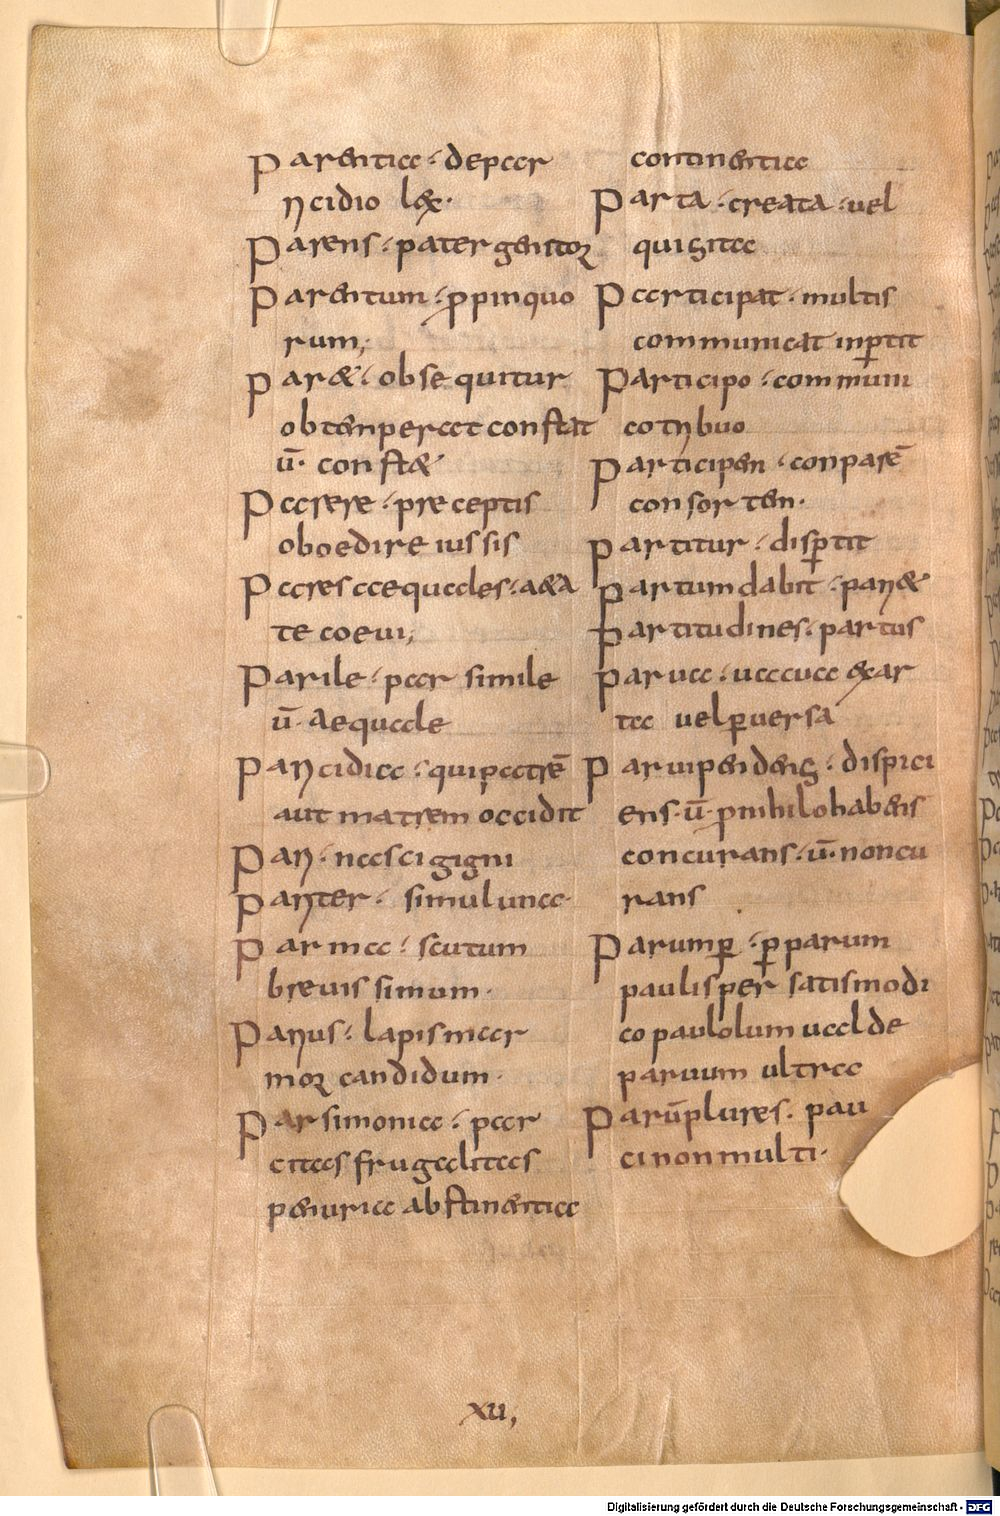 Parentiae· depar
ricidio lex·
Parens· pater genitor
Parentum· ꝓpinquo
rum;
Paret· obsequitur
obtenperat constat
ū· constet
Parere· preceptis
oboedire iussis
Pares aequales· aeta
te coeui;
Parile· par simile
ū· aequale
Paricidiae· qui patrē
aut matrem occidit
Pari· nasci gigni
Pariter· simul una·
Parma· scutum
breuissimum·
Parius· lapis mar
mor candidum·
Parsimonia· par
citas frugalitas
penuria abstinentia
continentia
Parta· creata· uel
quisita
Participat· multis
communicat inꝑtit
Participo· communi
co tribuo
Participen· conparē
consorten·
Partitur· disꝑtit
Partum dabit· pariet
Partitudines· partus
Parua· uacua exar
ta uel ꝑuersa
Paruipendens· dispici
ens· ū· ꝓ nihilo habens
con curans· ū· non cu
rans
Parumꝑ· ꝑ parum
paulisper satis modi
co paululum ualde
paruum ultra
Parū plures· pau
ci non multi·
xu,
Digitalisierung gefördert durch die Deutsche Forschungsgemeinschaft - DFG